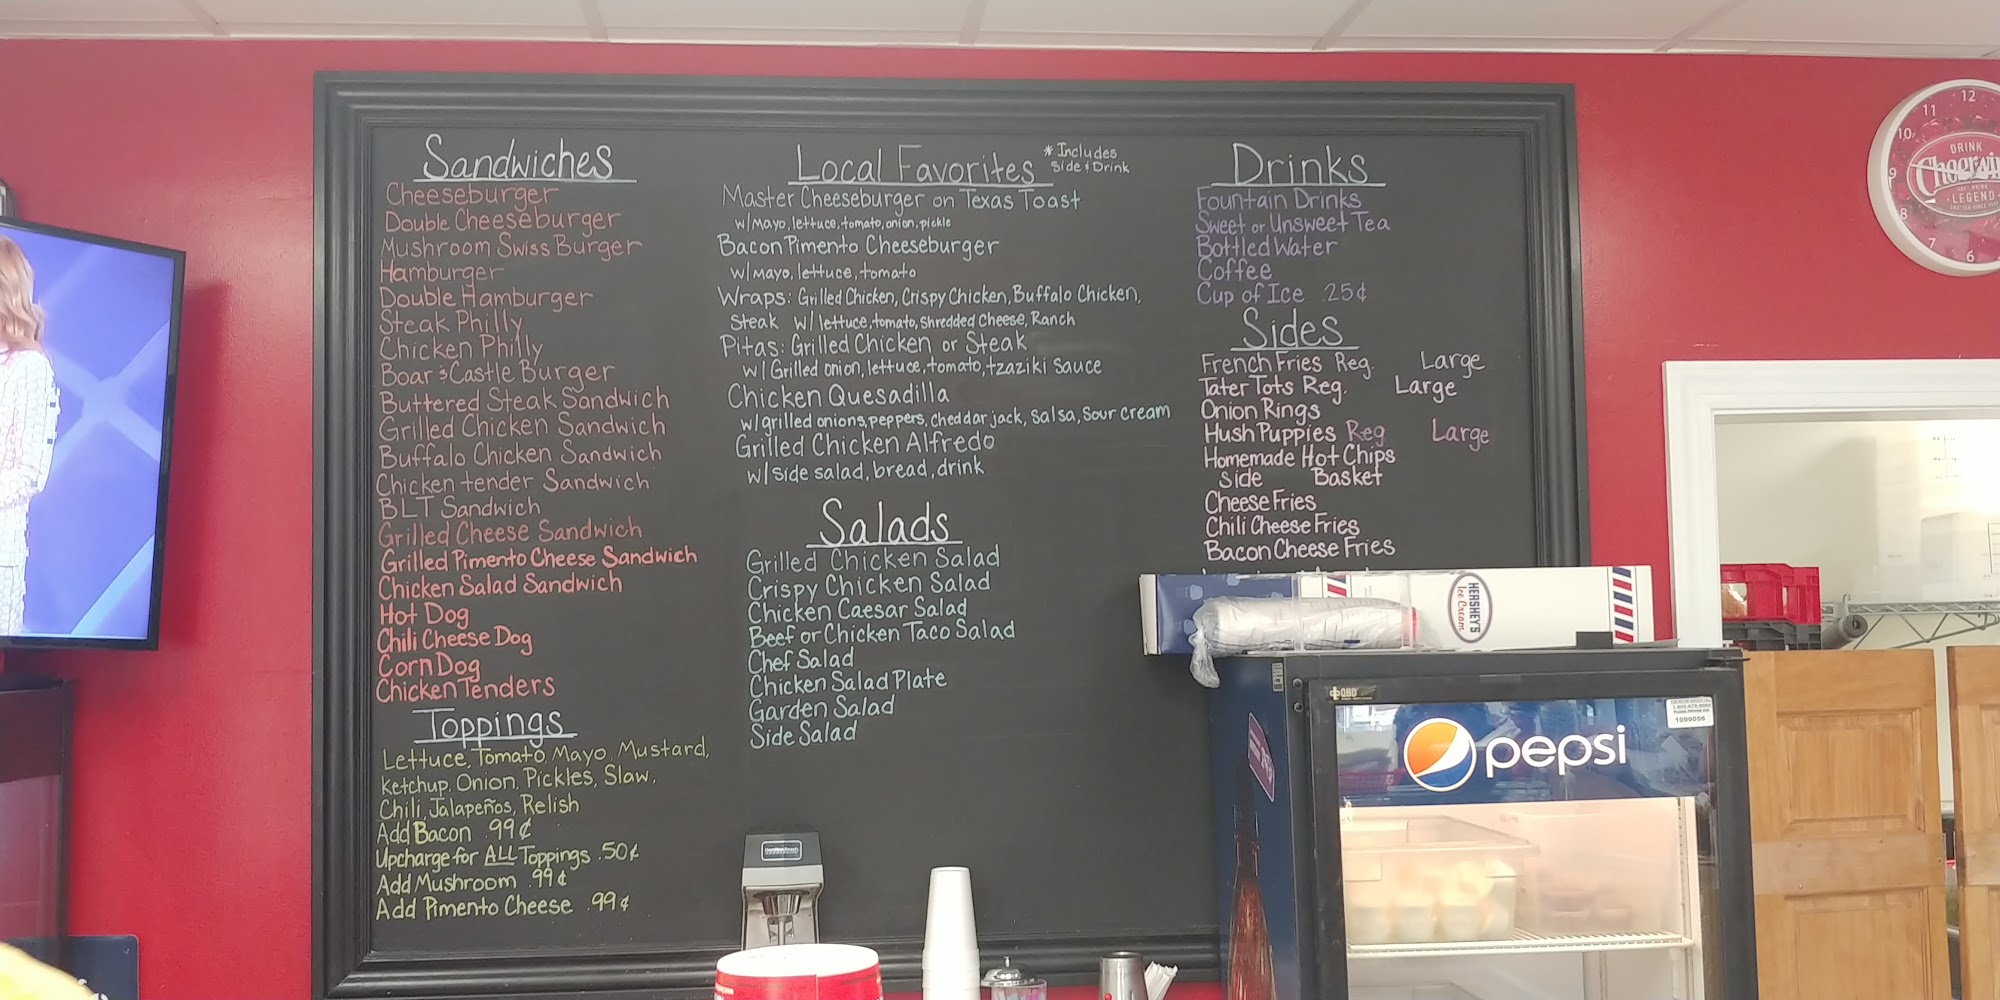 Sandwiches
Cheeseburger
Double Cheeseburger
Mushroom Swiss Burger
Hamburger
Double Hamburger
Steak Philly
Chicken Philly
Boar & Castle Burger
Buttered Steak Sandwich
Grilled Chicken Sandwich
Buffalo Chicken Sandwich
Chicken tender Sandwich
BLT Sandwich
Grilled Cheese Sandwich
Grilled Pimento Cheese Sandwich
Chicken Salad Sandwich
Hot Dog
Chili Cheese Dog
Corn Dog
Chicken Tenders
Toppings
Lettuce, Tomato, Mayo, Mustard,
Ketchup, Onion, Pickles, Slaw,
Chili, Jalapeños, Relish
Add Bacon .99¢
Upcharge for ALL Toppings .50¢
Add Mushroom .99¢
Add Pimento Cheese .99¢
Local Favorites
*Includes
Side & Drink
Master Cheeseburger on Texas Toast
w/Mayo, lettuce, tomato, onion, pickle
Bacon Pimento Cheeseburger
w/Mayo, lettuce, tomato
Wraps: Grilled Chicken, Crispy Chicken, Buffalo Chicken,
Steak w/ lettuce, tomato, shredded Cheese, Ranch
Pitas: Grilled Chicken or Steak
w/ Grilled onion, lettuce, tomato, tzaziki Sauce
Chicken Quesadilla
w/grilled onions, peppers, cheddar jack, Salsa, Sour cream
Grilled Chicken Alfredo
w/side salad, bread, drink
Salads
Grilled Chicken Salad
Crispy Chicken Salad
Chicken Caesar Salad
Beef or Chicken Taco Salad
Chef Salad
Chicken Salad Plate
Garden Salad
Side Salad
Drinks
Fountain Drinks
Sweet or Unsweet Tea
Bottled Water
Coffee
Cup of Ice .25¢
Sides
French Fries Reg. Large
Tater Tots Reg. Large
Onion Rings
Hush Puppies Reg Large
Homemade Hot Chips
Side Basket
Cheese Fries
Chili Cheese Fries
Bacon Cheese Fries
HERSHEY'S
Ice Cream
QBD
1099056
pepsi
Hamilton Beach
12
11
10
9
8
7
6
DRINK
LEGEND